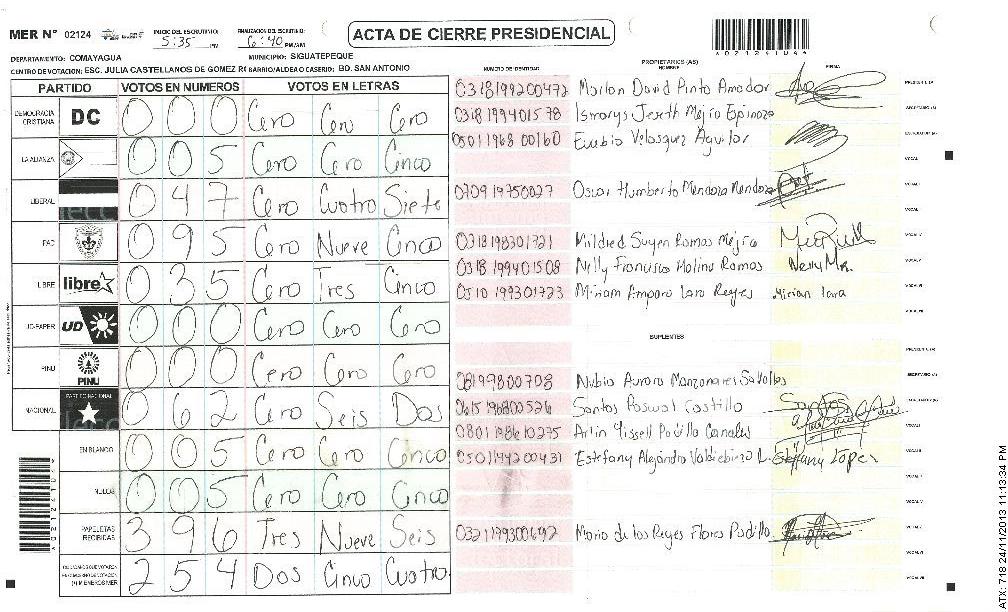 MER N° 02124
INICIO DEL ESCRUTINIO: 5:35 PM
FINALIZACION DEL ESCRUTINIO: 6:40 PM/AM
ACTA DE CIERRE PRESIDENCIAL
DEPARTAMENTO: COMAYAGUA MUNICIPIO: SIGUATEPEQUE
CENTRO DE VOTACION: ESC. JULIA CASTELLANOS DE GOMEZ R BARRIO/ALDEA O CASERIO: BO. SAN ANTONIO
PARTIDO VOTOS EN NUMEROS VOTOS EN LETRAS
DEMOCRACIA CRISTIANA DC 0 0 0 Cero Cero Cero
LA ALIANZA 0 0 5 Cero Cero Cinco
LIBERAL 0 4 7 Cero Cuatro Siete
PAC 0 9 5 Cero Nueve Cinco
LIBRE libre 0 3 5 Cero Tres Cinco
UD-FAPER UD 0 0 0 Cero Cero Cero
PINU PINU 0 0 0 Cero Cero Cero
NACIONAL PARTIDO NACIONAL 0 6 2 Cero Seis Dos
EN BLANCO 0 0 5 Cero Cero Cinco
NULOS 0 0 5 Cero Cero Cinco
PAPELETAS RECIBIDAS 3 9 6 Tres Nueve Seis
2 5 4 Dos Cinco Cuatro
NUMERO DE IDENTIDAD
PROPIETARIOS (AS)
NOMBRE
FIRMA
0318199200472 Marlon David Pinto Amador
0318199401578 Ismarys Jexeth Mejia Espinoza
0501196800160 Eusebio Velasquez Aguilar
070919750027 Oscar Humberto Mendoza Mendoza
0318198301721 Mildred Suyen Ramos Mejia
0318199401508 Nelly Francisca Molina Ramos
0510199301723 Miriam Amparo Lara Reyes Mirian Lara
SUPLENTES
08199800708 Nubia Aurora Manzanares
0615196800526 Santos Pascual Castillo Santos
0801198610275 Arlin Yissell Padilla Canales
0501199200431 Estefany Alejandra Valdiebiezo L. Steffany Lopez
0321199300692 Mario de los Reyes Flores Padilla
4021241044
ATX: 718 24/11/2013 11:13:34 PM